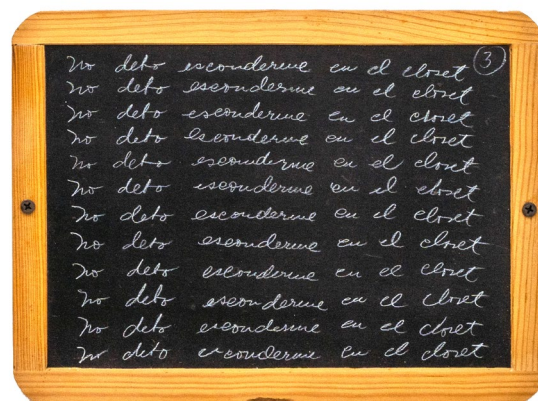 No debo esconderme en el closet 3
No debo esconderme en el closet
No debo esconderme en el closet
No debo esconderme en el closet
No debo esconderme en el closet
No debo esconderme en el closet
No debo esconderme en el closet
No debo esconderme en el closet
No debo esconderme en el closet
No debo esconderme en el closet
No debo esconderme en el closet
No debo esconderme en el closet